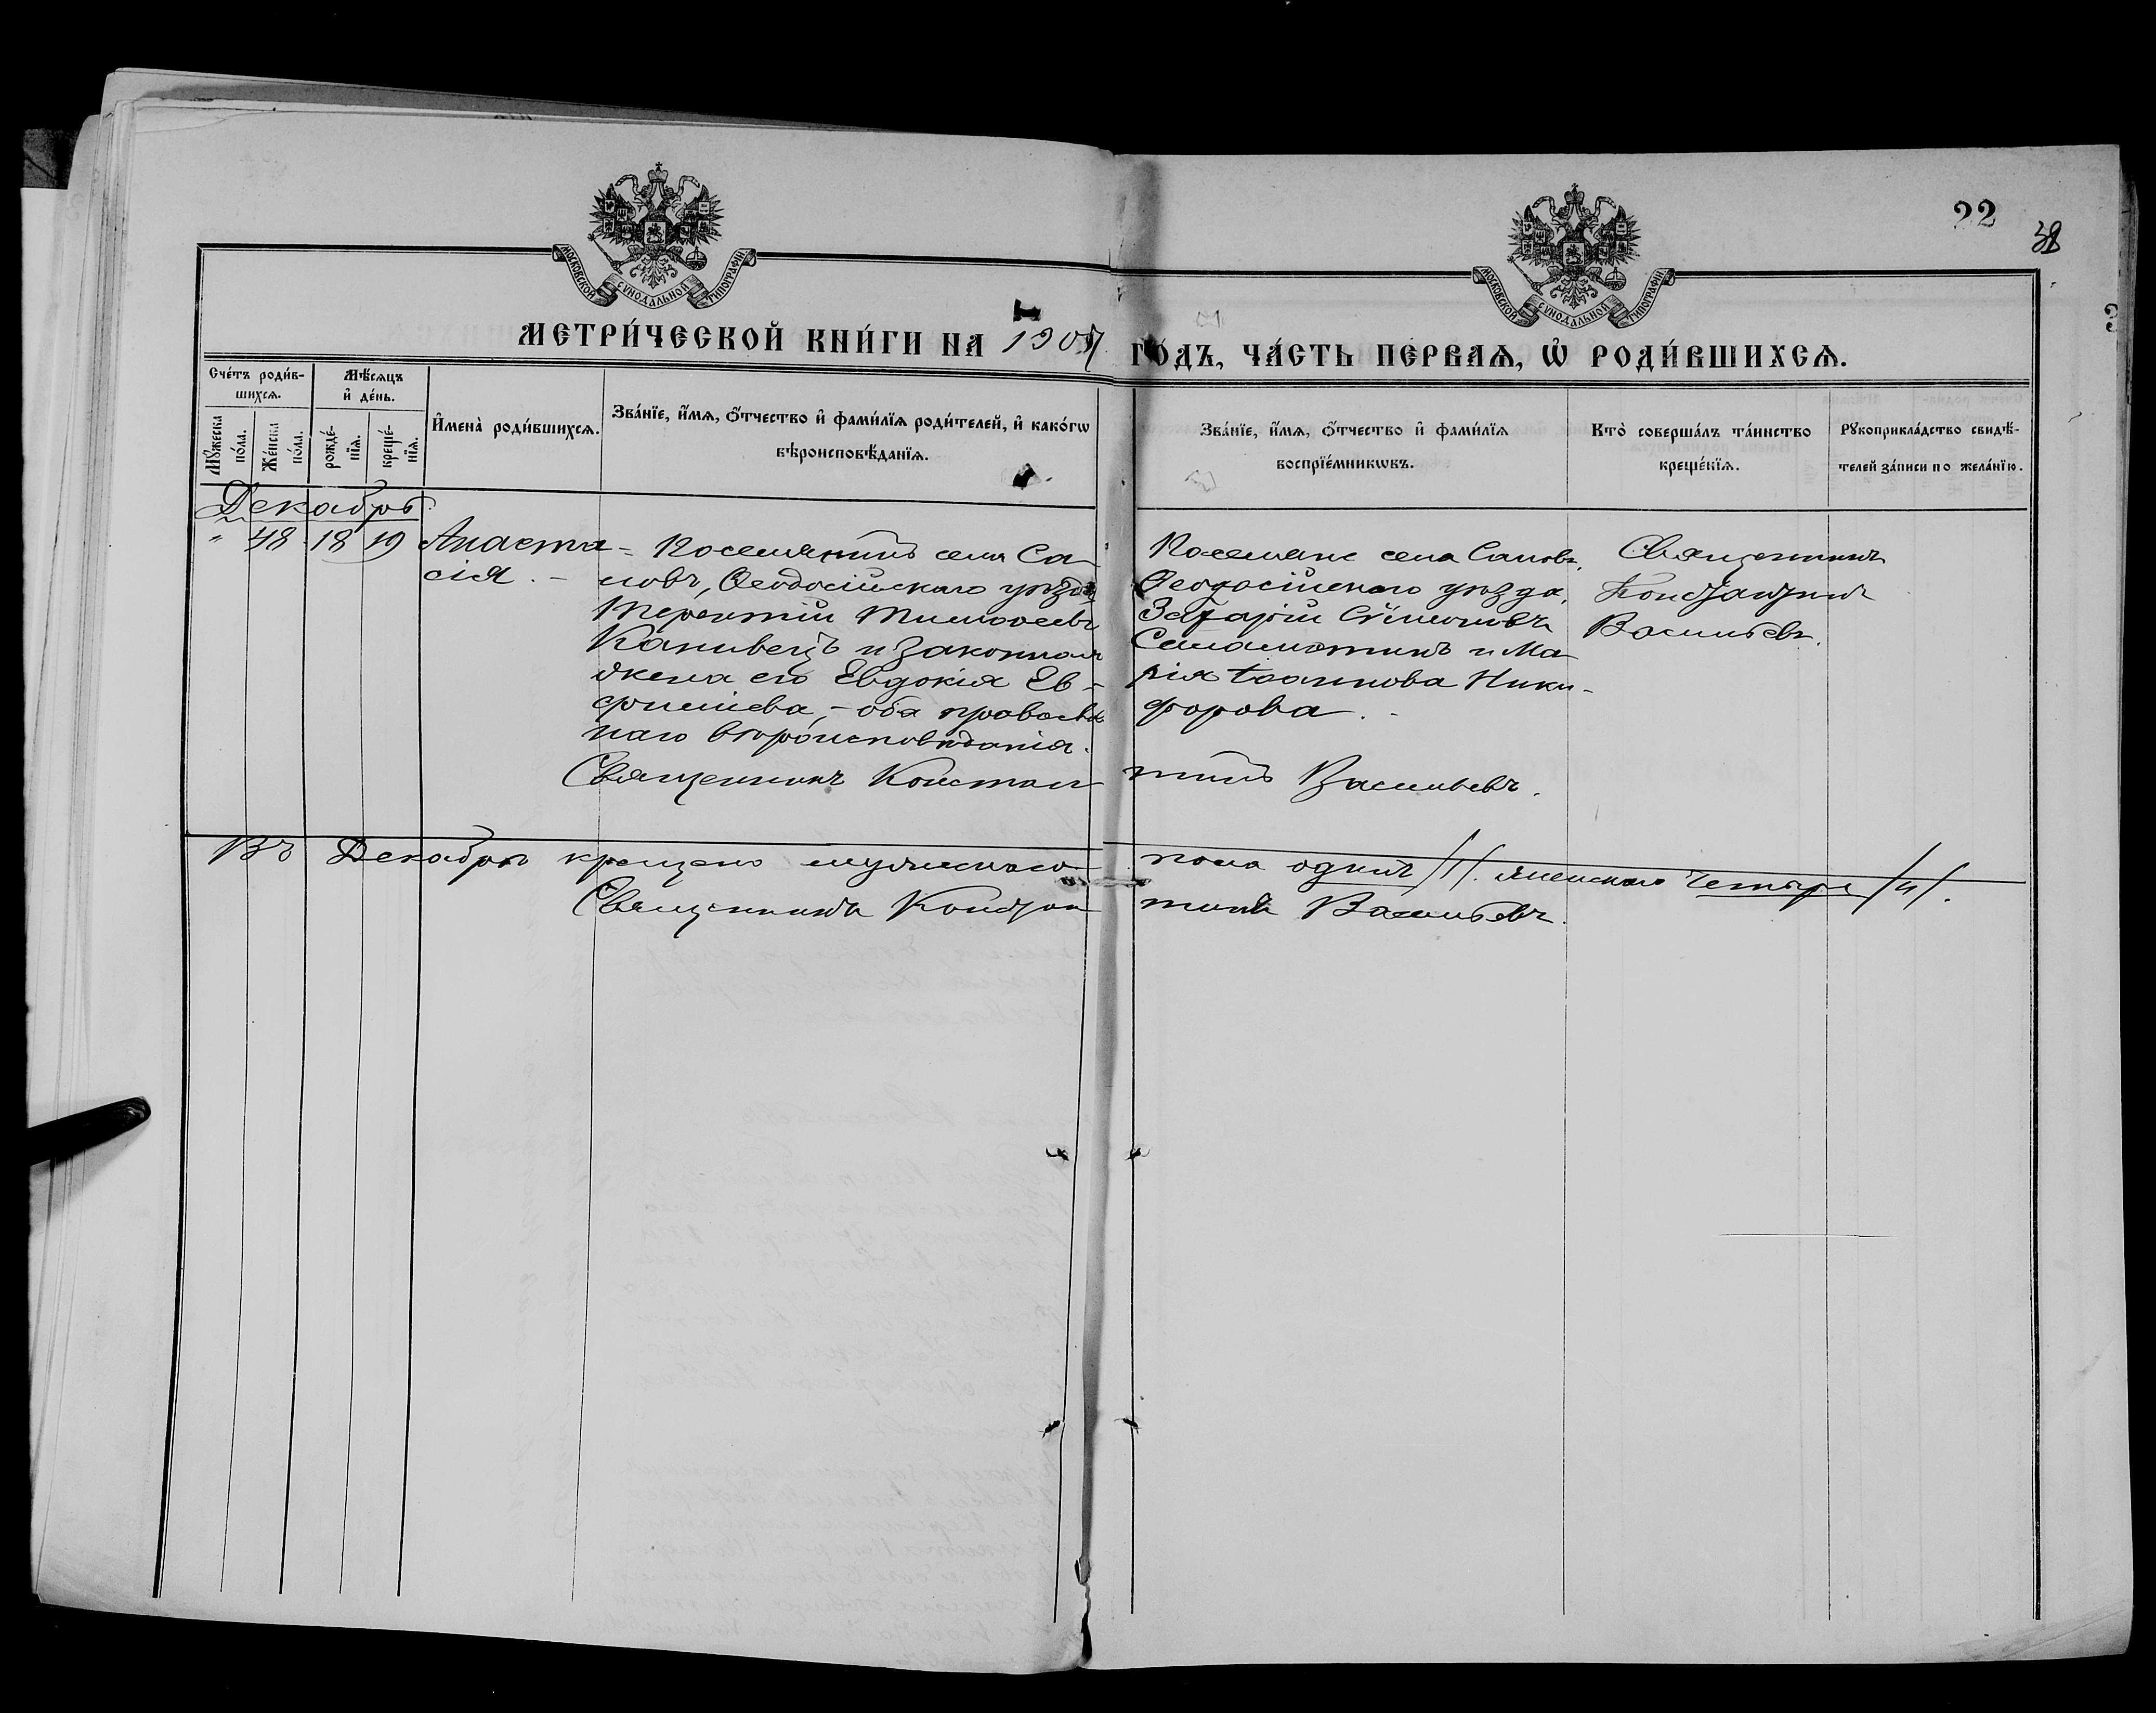 МОСКОВСКОЙ СѴНОДАЛЬНОЙ ТИПОГРАФІИ
МОСКОВСКОЙ СѴНОДАЛЬНОЙ ТИПОГРАФІИ
22
МЕТРИ́ЧЕСКОЙ КНИ́ГИ НА 1907 ГО́ДЪ, ЧА́СТЬ ПЕ́РВАѦ, Ѡ҆ РОДИ́ВШИХСѦ.
Сче́тъ роди́в-
шихсѧ.
Мѣ́сѧцъ
и҆ де́нь.
Мꙋ́жеска
по́ла.
Же́нска
по́ла.
рожде́-
нїѧ.
креще́-
нїѧ.
И҆мена̀ роди́вшихсѧ.
Зва́нїе, и҆́мѧ, ѻ҆́тчество и҆ фами́лїѧ роди́телей, и҆ како́гѡ
вѣроисповѣ́данїѧ.
Зва́нїе, и҆́мѧ, ѻ҆́тчество и҆ фами́лїѧ
воспрїе́мникѡвъ.
Кто̀ соверша́лъ та́инство
креще́нїѧ.
Рꙋкоприкла́дство свидѣ́-
телей за́писи по жела́нїю.
Декабрь.
" 48 18 19
Анаста=
сія. –
Поселянинъ села Са
новъ, Ѳеодосійскаго уѣзда
Терентій Тимоѳеевъ
Канивецъ и законная
жена его Евдокія Ев-
фиміева, – оба православ
наго вѣроисповѣданія.
Поселяне села Сановъ,
Ѳеодосійскаго уѣзда,
Захарій Сѵмеоновъ
и Ма
рія Іоаннова Ники-
форова. -
Священникъ
Константинъ
Васильевъ.
Священникъ Констан тинъ Васильевъ.
Въ Декабрѣ крещено мужескаго пола одинъ /1/. женскаго четыре /4/.
Священникъ Констан тинъ Васильевъ.